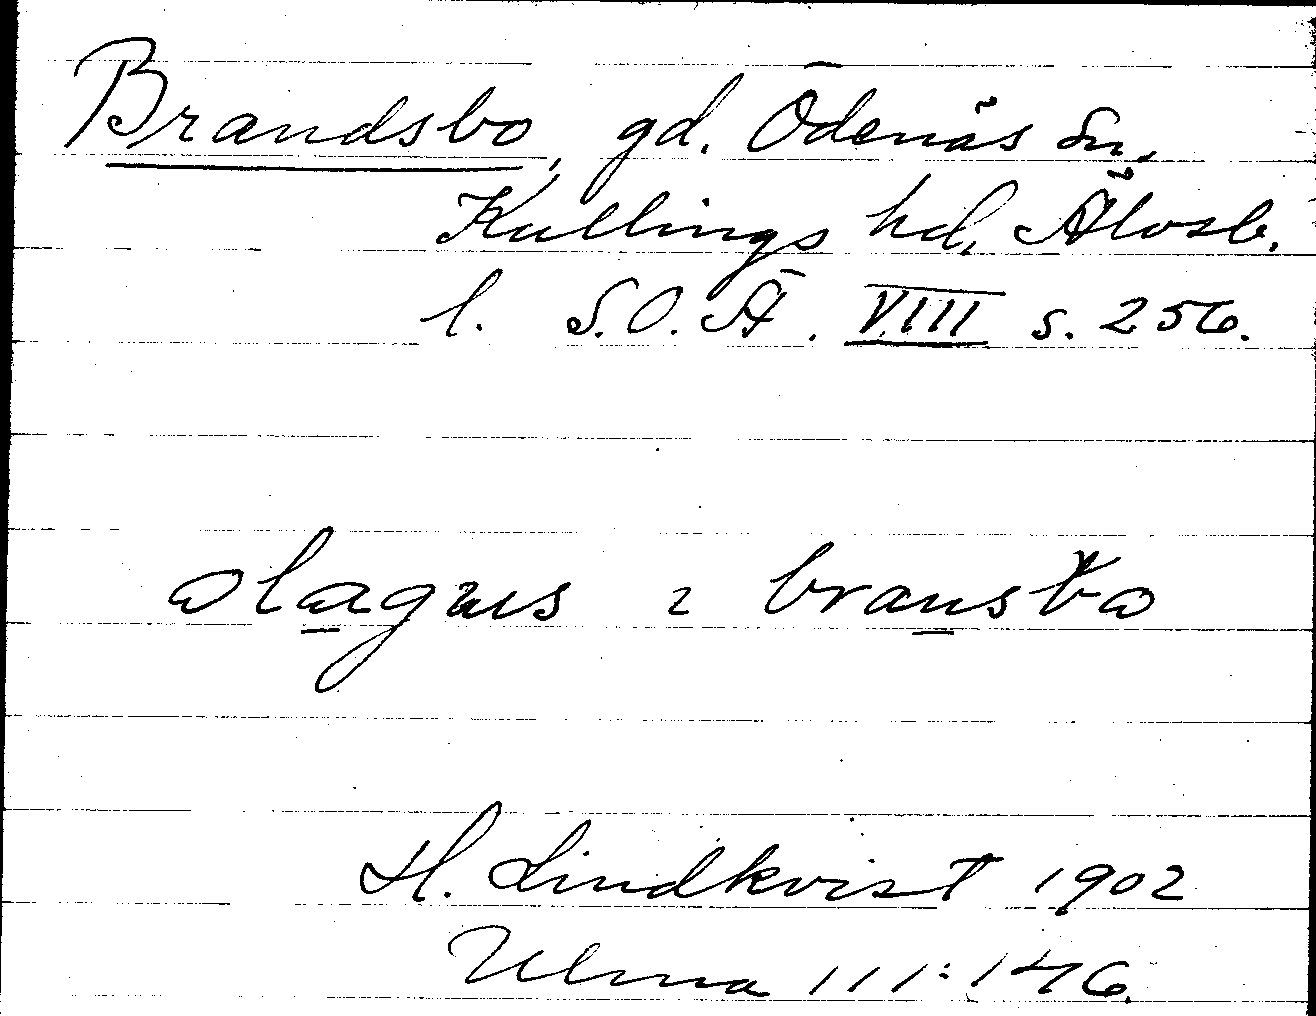 Brandsbo, gd. Ödenäs sn,
Kullings hd, Älvsb.
l. S.O.Ä. VIII s. 256.
ɷlagnɩs ɩ branstɷ
H. Lindkvist 1902
Ulma 111:146.